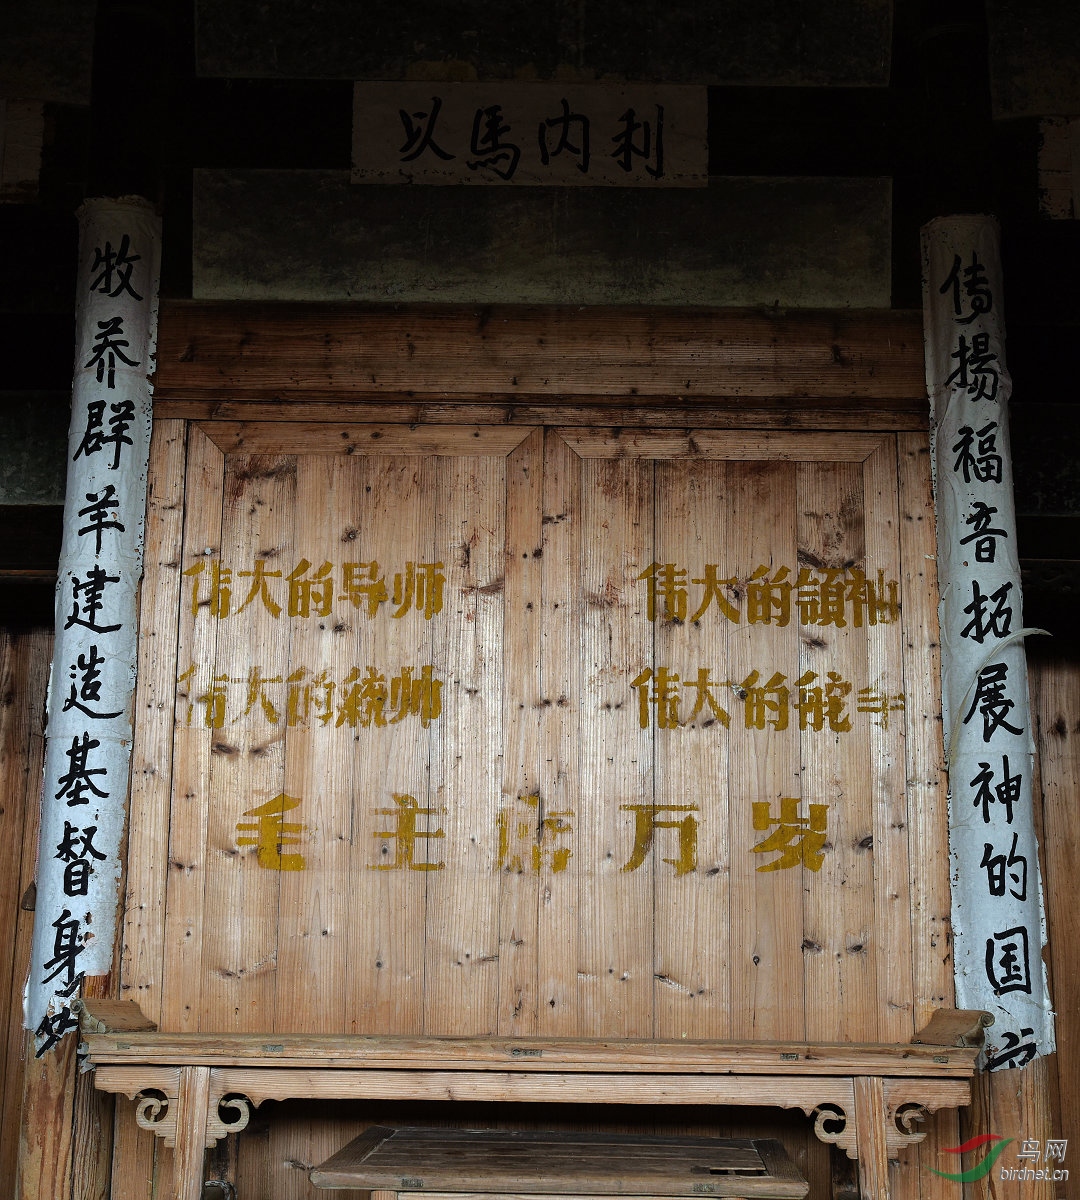 以馬内利
传揚福音拓展神的国
牧养群羊建造基督身
伟大的导师
伟大的領袖
伟大的統帅
伟大的舵手
毛主席万岁
鸟网
birdnet.cn